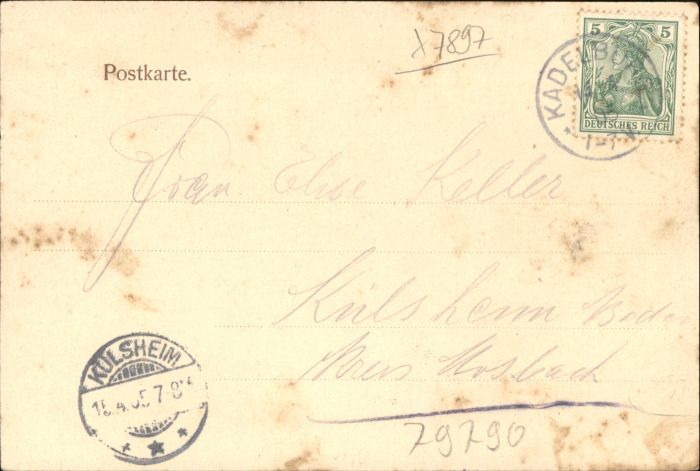 5 5
x7897
Postkarte.
KADELBU
DEUTSCHES REICH
1-7N
Frau Elise Keller
Külsheim Baden
Kreis Mosbach
KÜLSHEIM
15.4.05.7-8V.
79790